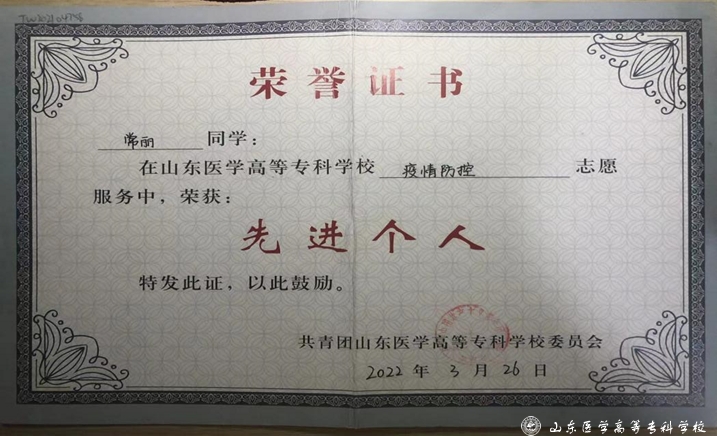 荣誉证书
常丽 同学：
在山东医学高等专科学校 疫情防控 志愿
服务中，荣获：
先进个人
特发此证，以此鼓励。
共青团山东医学高等专科学校委员会
2022 年 3 月 26 日
山东医学高等专科学校